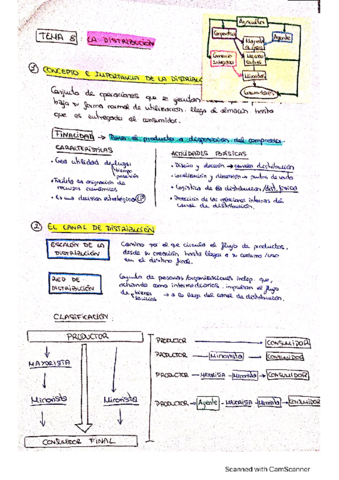 TEMA 8: LA DISTRIBUCIÓN
Agricultor
Agente
Minorista
Consumidores
① CONCEPTO E IMPORTANCIA DE LA
Conjunto de operaciones que se
bajo su forma normal de utilización. llega al almacén hasta
que es entregado al consumidor.
FINALIDAD → Poner el producto a disposición del comprador.
CARACTERÍSTICAS
ACTIVIDADES BÁSICAS
• Crea utilidad de lugar
tiempo
posesión
• Facilita la asignación de
recursos económicos
• Es una decisión estratégica
• Diseño y elección → canales distribución
• Localización y dimensión → puntos de venta
• Logística de la distribución / dist. física
• Dirección de las operaciones internas del
canal de distribución.
② EL CANAL DE DISTRIBUCIÓN
DE LA
DISTRIBUCIÓN
Camino por el que circula el flujo de productos,
desde su creación hasta llegar a su consumo/uso
en el destino final.
RED DE
DISTRIBUCIÓN
Conjunto de personas/organizaciones indep. que,
actuando como intermediarios, impulsan el flujo
de bienes
servicios → a lo largo del canal de distribución.
CLASIFICACIÓN:
PRODUCTOR
MAYORISTA
Minorista
Minorista
CONSUMIDOR FINAL
PRODUCTOR → CONSUMIDOR
PRODUCTOR → Minorista → CONSUMIDOR
PRODUCTOR → MAYORISTA → Minorista → CONSUMIDOR
PRODUCTOR → Agente → MAYORISTA → Minorista → CONSUMIDOR
Scanned with CamScanner